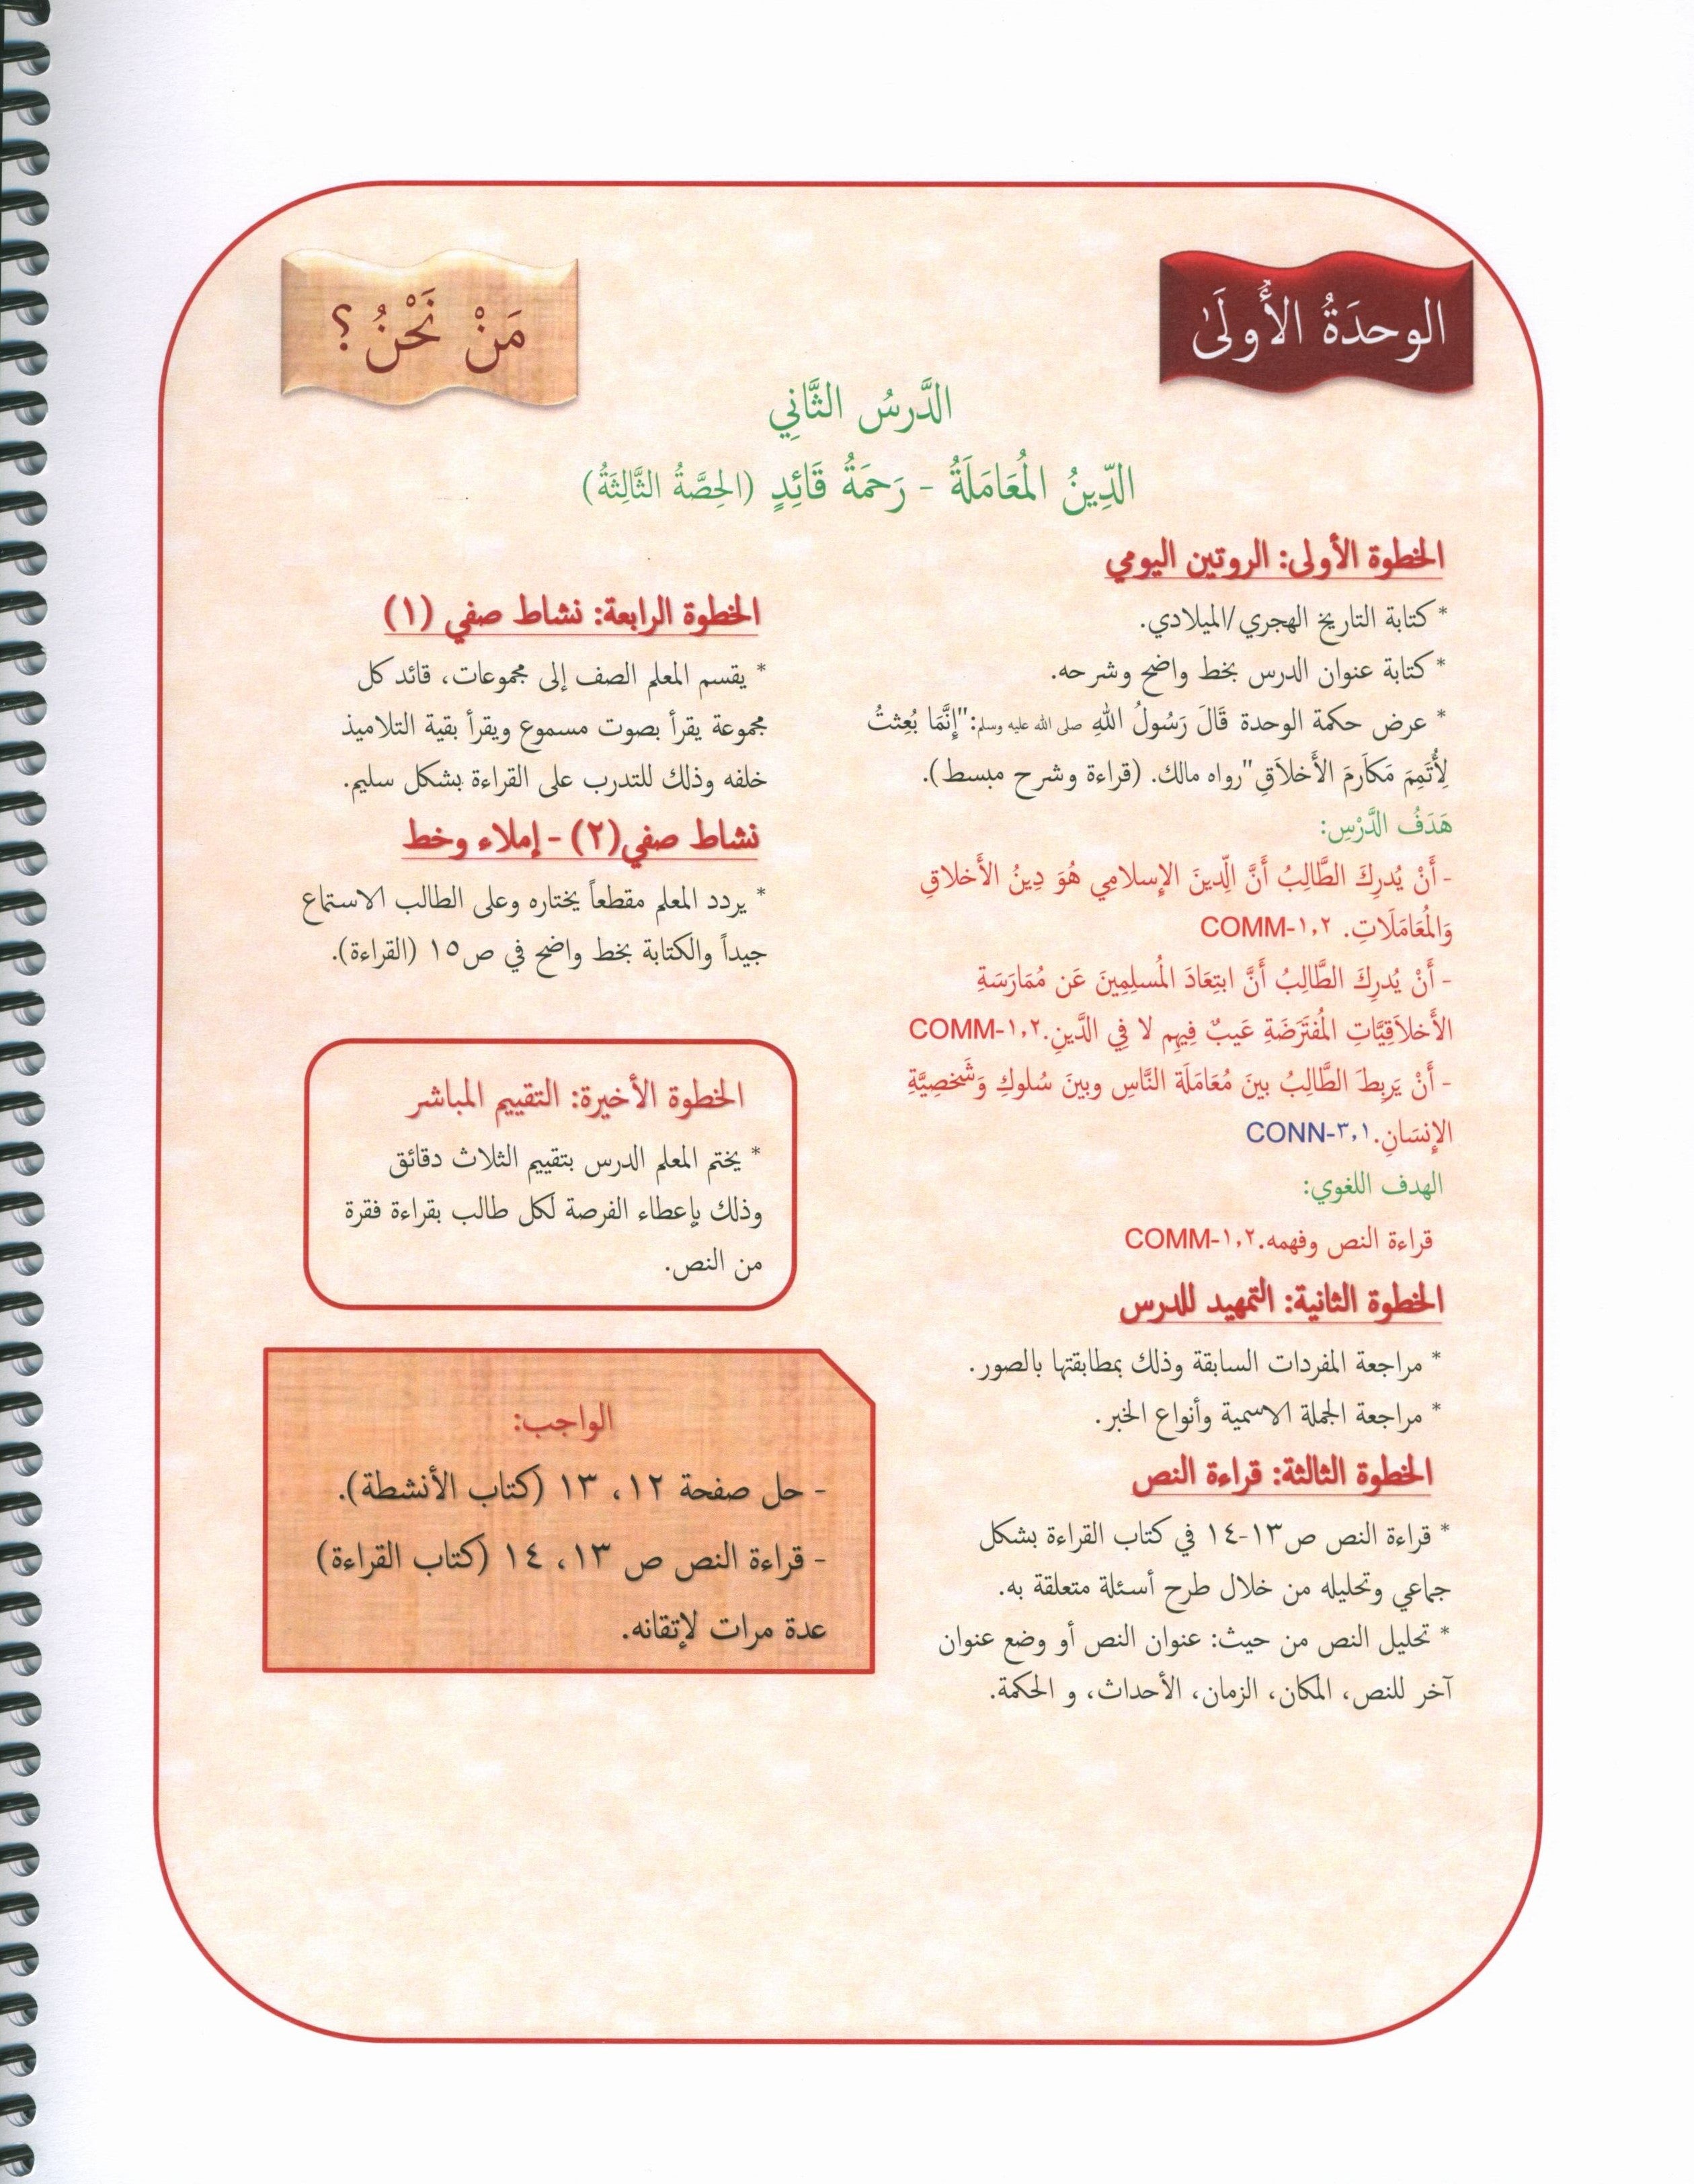 الوحدَةُ الأُولَىٰ
مَنْ نَحْنُ؟
الدَّرسُ الثَّانِي
الدِّينُ المُعَامَلَةُ - رَحمَةُ قَائِدٍ (الحِصَّةُ الثَّالِثَةُ)
الخطوة الأولى: الروتين اليومي
* كتابة التاريخ الهجري/الميلادي.
* كتابة عنوان الدرس بخط واضح وشرحه.
* عرض حكمة الوحدة قَالَ رَسُولُ اللهِ صلى الله عليه وسلم:"إِنَّمَا بُعِثتُ
لِأُتَمِمَ مَكاَرِمَ الأَخلاَقِ"رواه مالك. (قراءة وشرح مبسط).
هَدَفُ الدَّرْسِ:
- أَنْ يُدرِكَ الطَّالِبُ أَنَّ الِّدينَ الإِسلامِي هُوَ دِينُ الأَخلاقِ
وَالمُعَامَلَاتِ. COMM-١,٢
- أَنْ يُدرِكَ الطَّالِبُ أَنَّ ابتِعَادَ المُسلِمِينَ عَن مُمَارَسَةِ
الأَخلاَقِيَّاتِ المُفتَرَضَةِ عَيبٌ فِيهِم لا فِي الدَّينِ.COMM-١,٢
- أَنْ يَربِطَ الطَّالِبُ بينَ مُعَامَلَة النَّاسِ وبينَ سُلوكِ وَشَخصِيَّةِ
الإِنسَانِ.CONN-٣,١
الهدف اللغوي:
قراءة النص وفهمه.COMM-١,٢
الخطوة الثانية: التمهيد للدرس
* مراجعة المفردات السابقة وذلك بمطابقتها بالصور.
* مراجعة الجملة الاسمية وأنواع الخبر.
الخطوة الثالثة: قراءة النص
* قراءة النص ص١٣-١٤ في كتاب القراءة بشكل
جماعي وتحليله من خلال طرح أسئلة متعلقة به.
* تحليل النص من حيث: عنوان النص أو وضع عنوان
آخر للنص، المكان، الزمان، الأحداث، و الحكمة.
الخطوة الرابعة: نشاط صفي (١)
* يقسم المعلم الصف إلى مجموعات، قائد كل
مجموعة يقرأ بصوت مسموع ويقرأ بقية التلاميذ
خلفه وذلك للتدرب على القراءة بشكل سليم.
نشاط صفي(٢) - إملاء وخط
* يردد المعلم مقطعاً يختاره وعلى الطالب الاستماع
جيداً والكتابة بخط واضح في ص١٥ (القراءة).
الخطوة الأخيرة: التقييم المباشر
* يختم المعلم الدرس بتقييم الثلاث دقائق
وذلك بإعطاء الفرصة لكل طالب بقراءة فقرة
من النص.
الواجب:
- حل صفحة ١٢، ١٣ (كتاب الأنشطة).
- قراءة النص ص ١٣، ١٤ (كتاب القراءة)
عدة مرات لإتقانه.